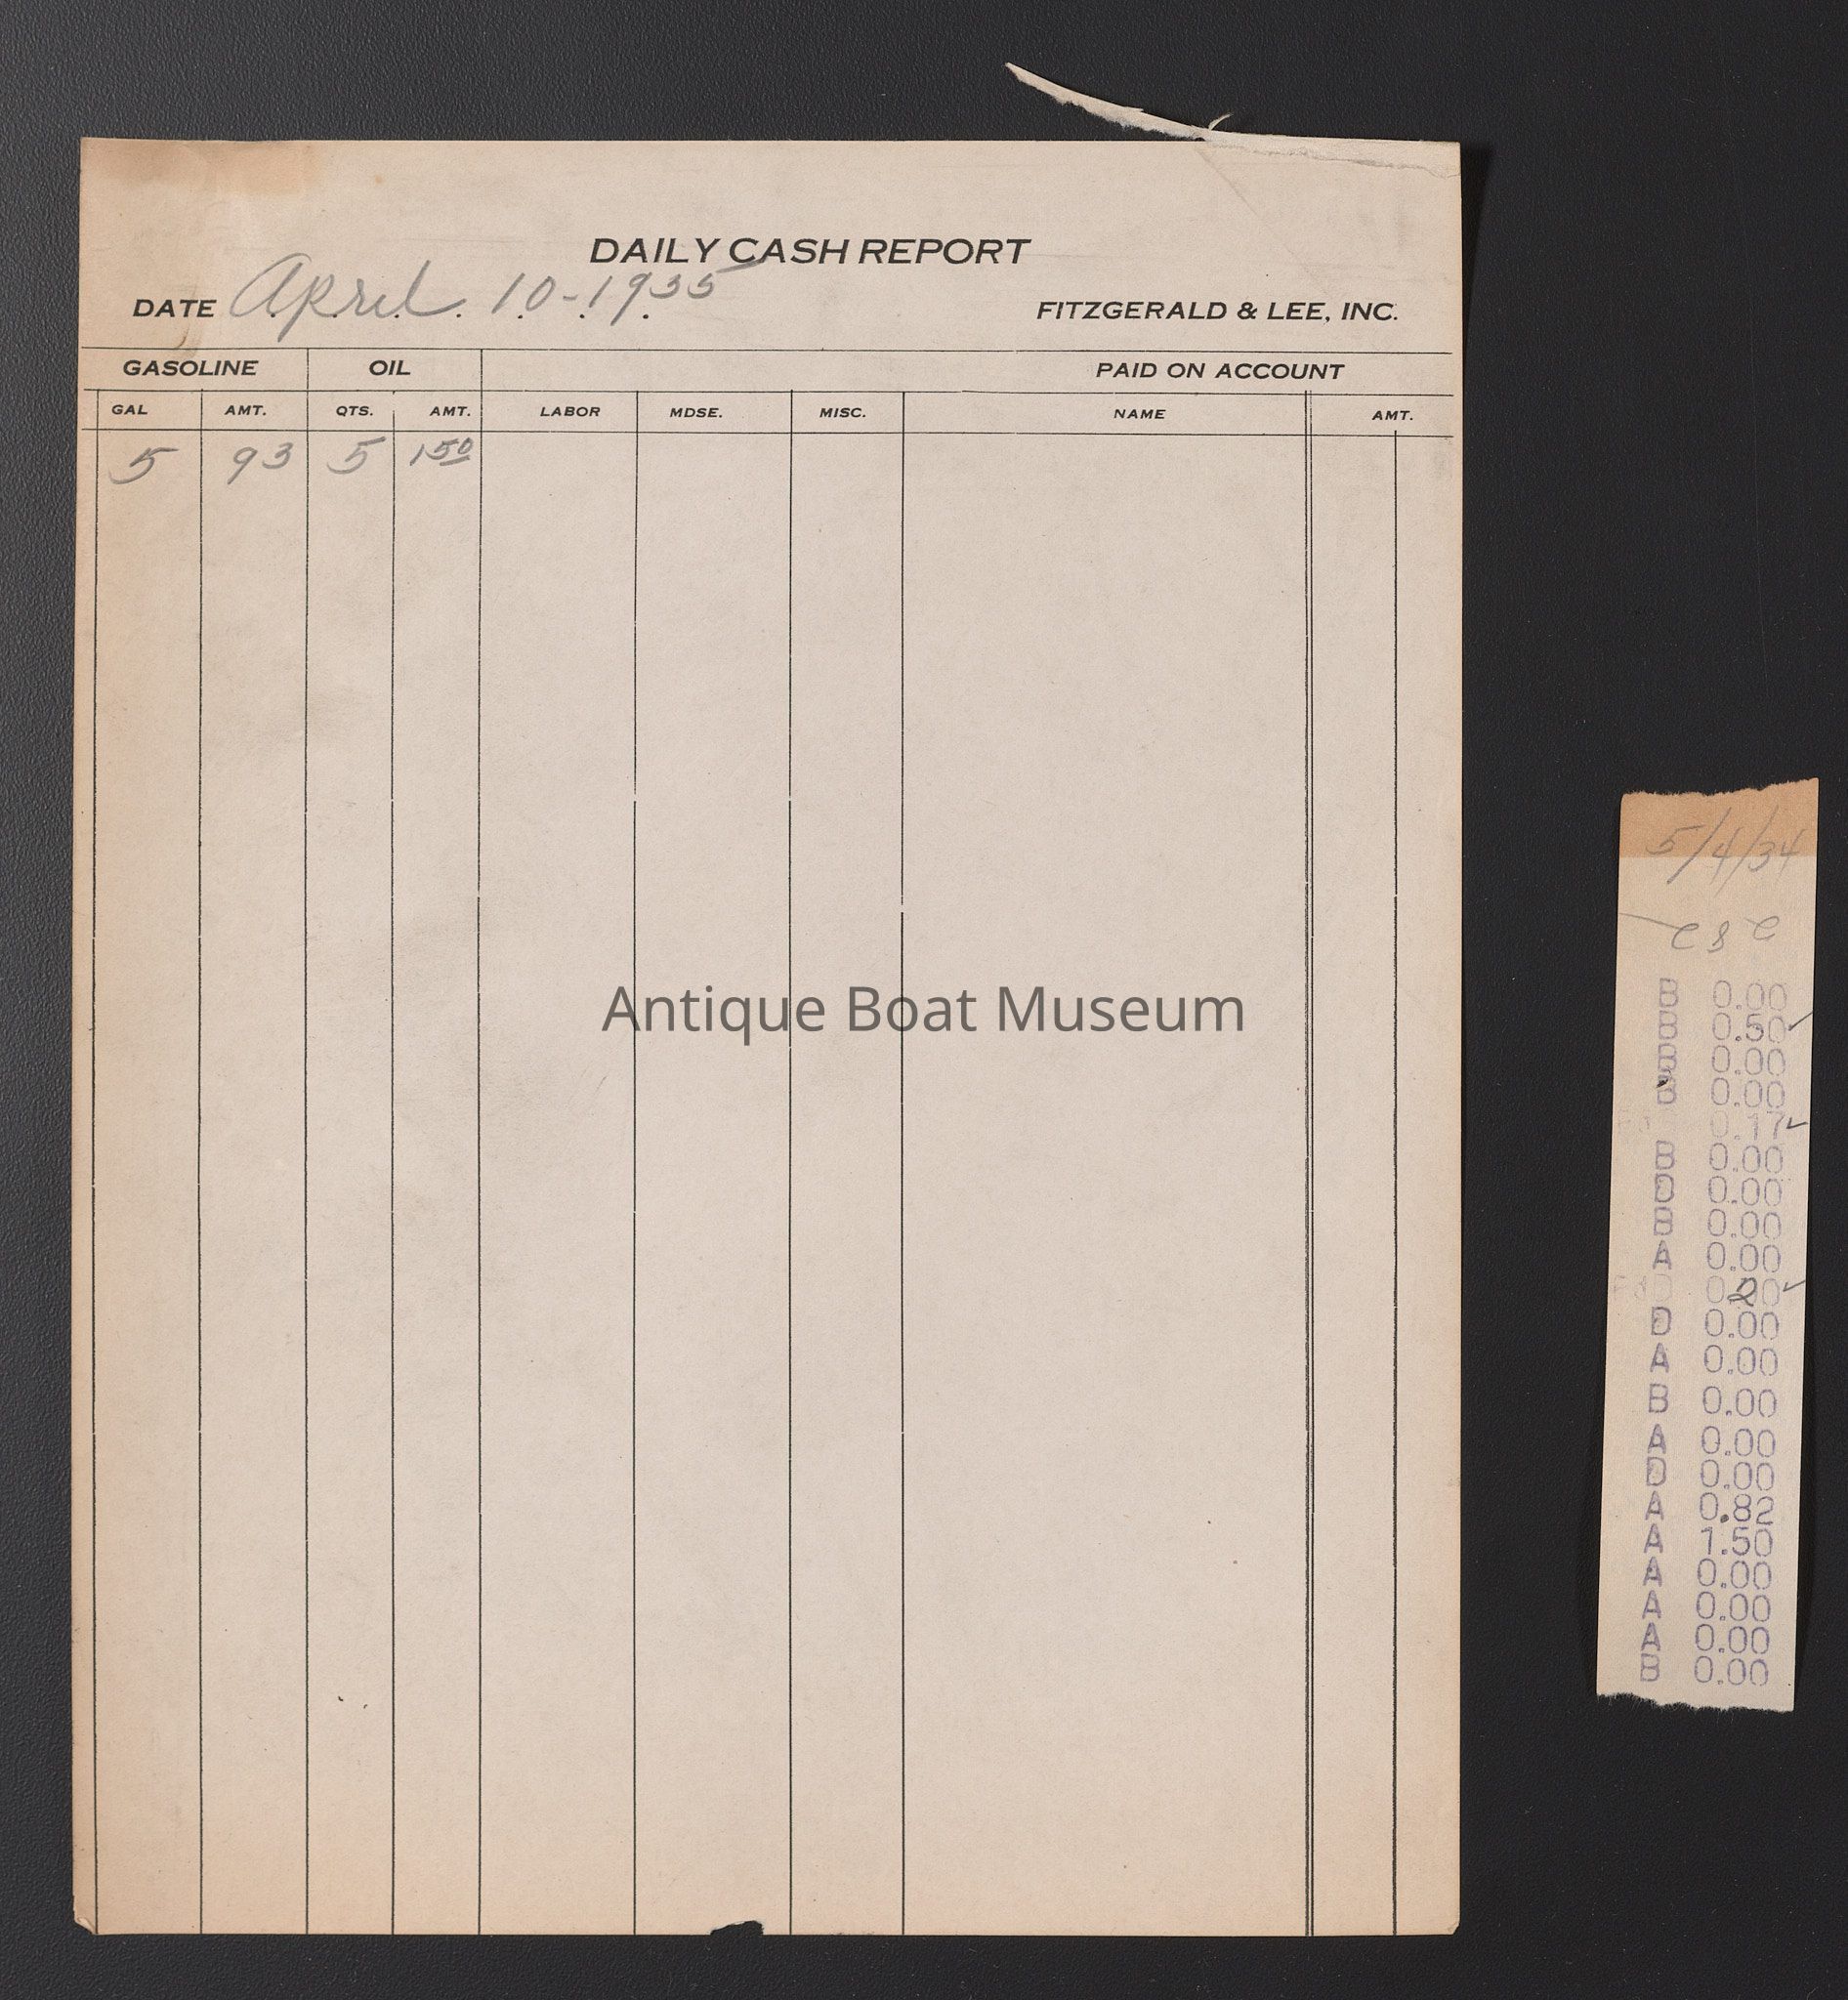 DAILY CASH REPORT
DATE April 10-1935 FITZGERALD & LEE, INC.
GASOLINE OIL PAID ON ACCOUNT
GAL AMT. QTS. AMT. LABOR MDSE. MISC. NAME AMT.
5 93 5 1 50
Antique Boat Museum
5/4/34
B 0.00
B 0.50
B 0.00
B 0.00
0.17
B 0.00
D 0.00
B 0.00
A 0.00
0.20
D 0.00
A 0.00
B 0.00
A 0.00
D 0.00
A 0.82
A 1.50
A 0.00
A 0.00
A 0.00
B 0.00